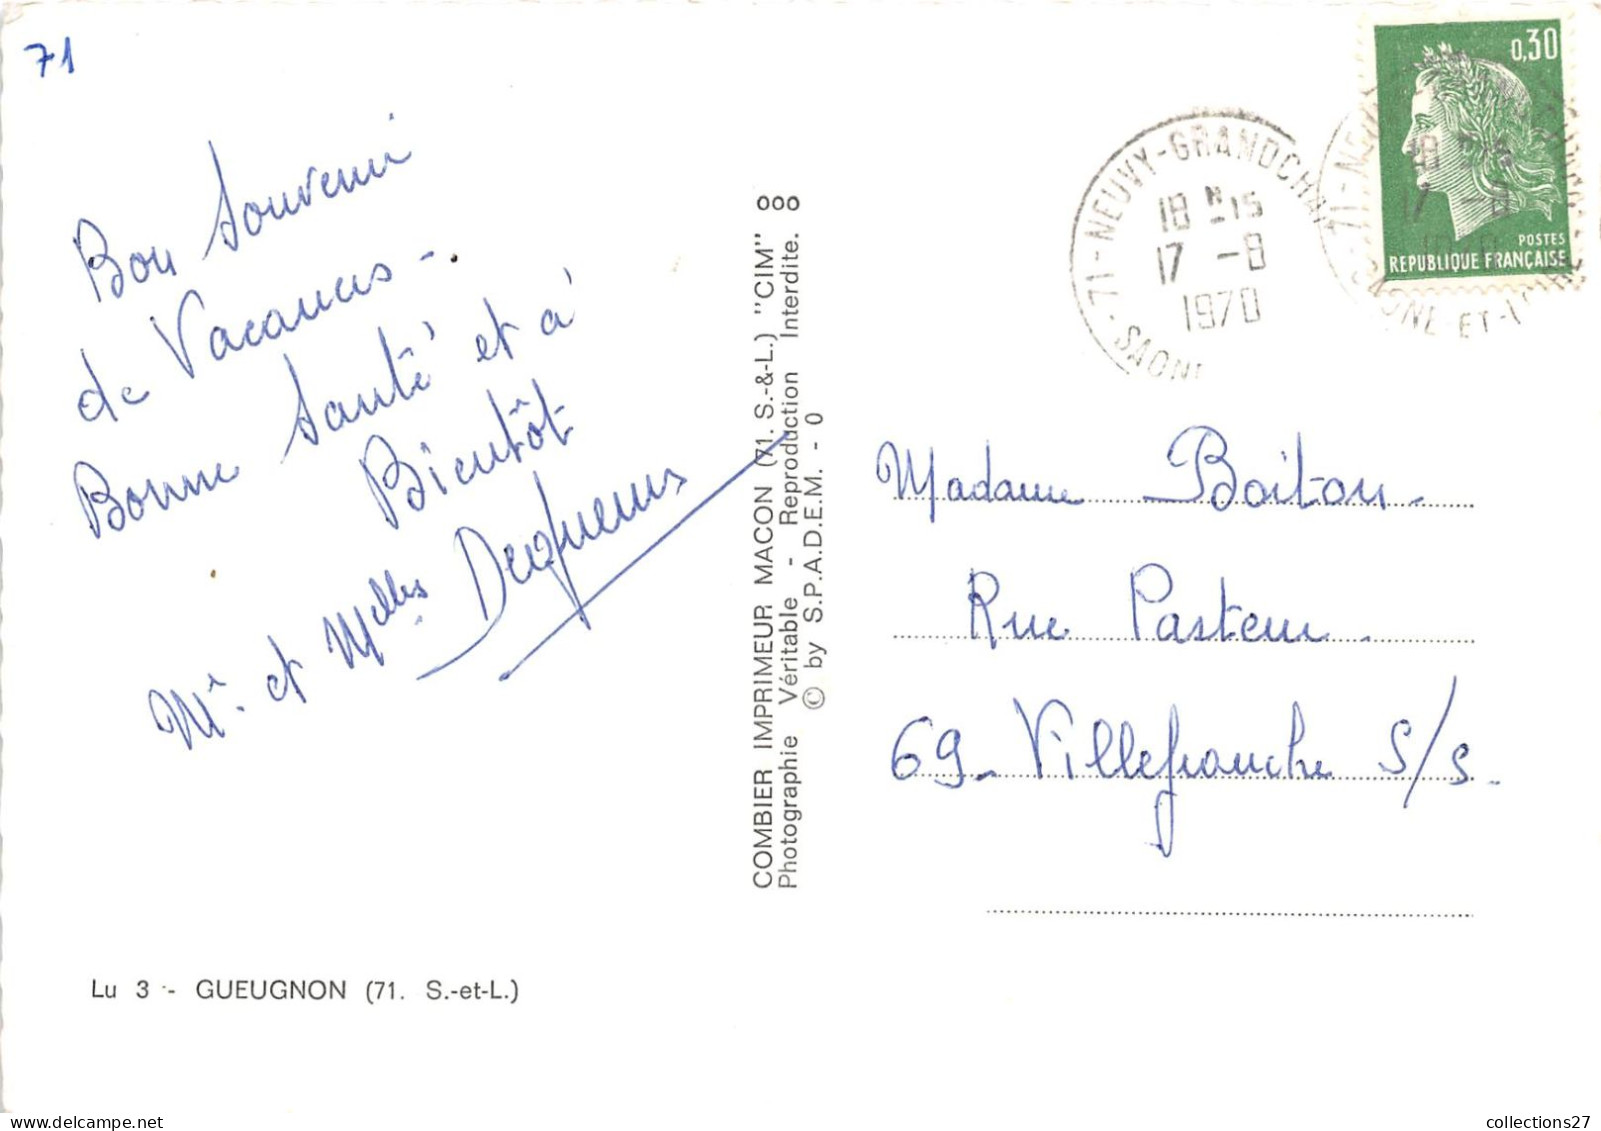 71
Bon Souvenir
de Vacances -.
Bonne Santé et à
Bientôt
Mr. et Melles
Lu 3 - GUEUGNON (71. S.-et-L.)
COMBIER IMPRIMEUR MACON (71. S.-&-L.) "CIM" ooo
Photographie Véritable - Reproduction Interdite.
© by S.P.A.D.E.M. - 0
71-NEUVY-GRANDCHAI
18 H-15
17 -8
1970
SAONE
0,30
POSTES
REPUBLIQUE FRANÇAISE
71-NEUVY
18 H-15
17 -8
1970
SAONE-ET-LOIRE
Madame Boiton.
Rue Pasteur.
69_ Villefranche S/s.
collections27